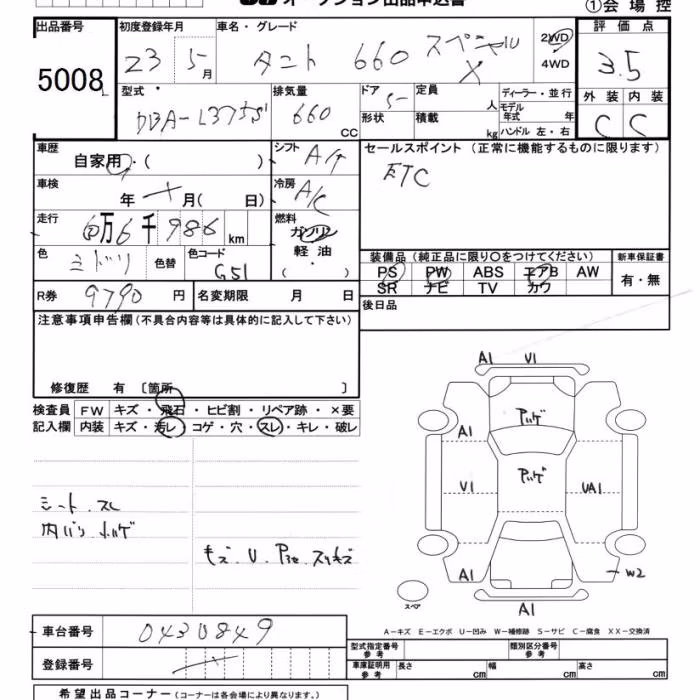 オークション出品申込書
①会場控
出品番号 初度登録年月 車名・グレード 評価点
5008 23 5月 タント 660 スペシャル X 2WD 4WD 3.5
型式 排気量 ドア 定員 ディーラー・並行 外装 内装
DBA-L375S 660 CC 5 人 モデル年式 年 C C
形状 積載 kg ハンドル 左・右
車歴 自家用・( ) シフト A/T セールスポイント (正常に機能するものに限ります)
車検 年 月( 日) 冷房 A/C ETC
走行 万6千986 km 燃料 ガソリン
軽油
・( )
色 ミドリ 色替 色コード G51 装備品 (純正品に限り○をつけてください) 新車保証書
PS PW ABS エアB AW 有・無
SR ナビ TV カワ
R券 9790 円 名変期限 月 日 後日品
注意事項申告欄 (不具合内容等は具体的に記入して下さい)
修復歴 有 〔箇所 〕
検査員 FW キズ・飛石・ヒビ割・リペア跡・×要
記入欄 内装 キズ・汚レ・コゲ・穴・スレ・キレ・破レ
A1 V1
A1
V1 UA1
A1 W2
A1
シート、スレ
スペア
A-キズ E-エクボ U-凹み W-補修跡 S-サビ C-腐食 XX-交換済
車台番号 0430849
型式指定番号 参考 類別区分番号 参考
登録番号
車庫証明用 参考 長さ cm 幅 cm 高さ cm
希望出品コーナー (コーナーは各会場により異なります。)